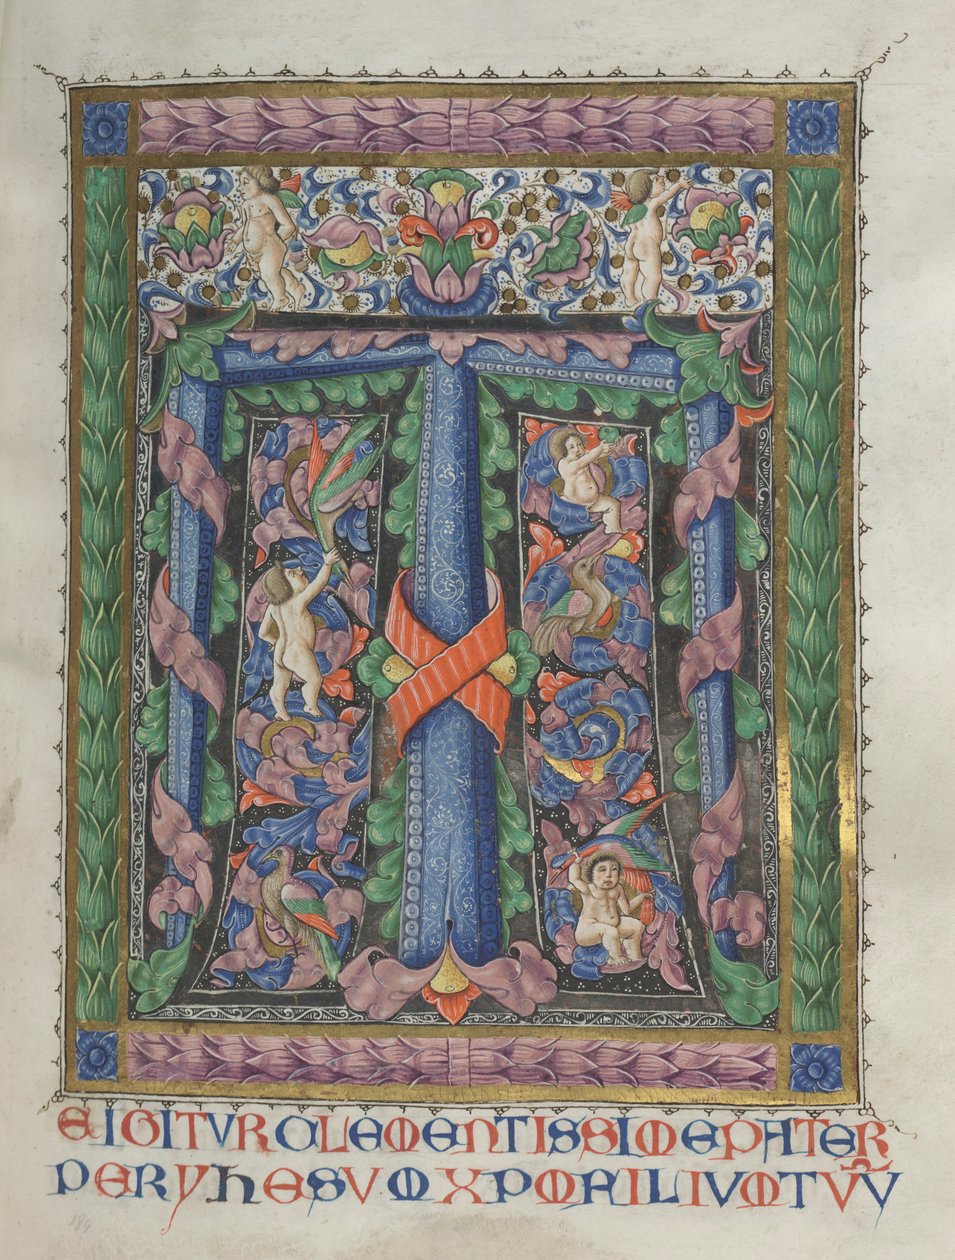 T
E IGITVR CLEMENTISSIME PATER
PER YHESVM XPM FILIVM TVṼ